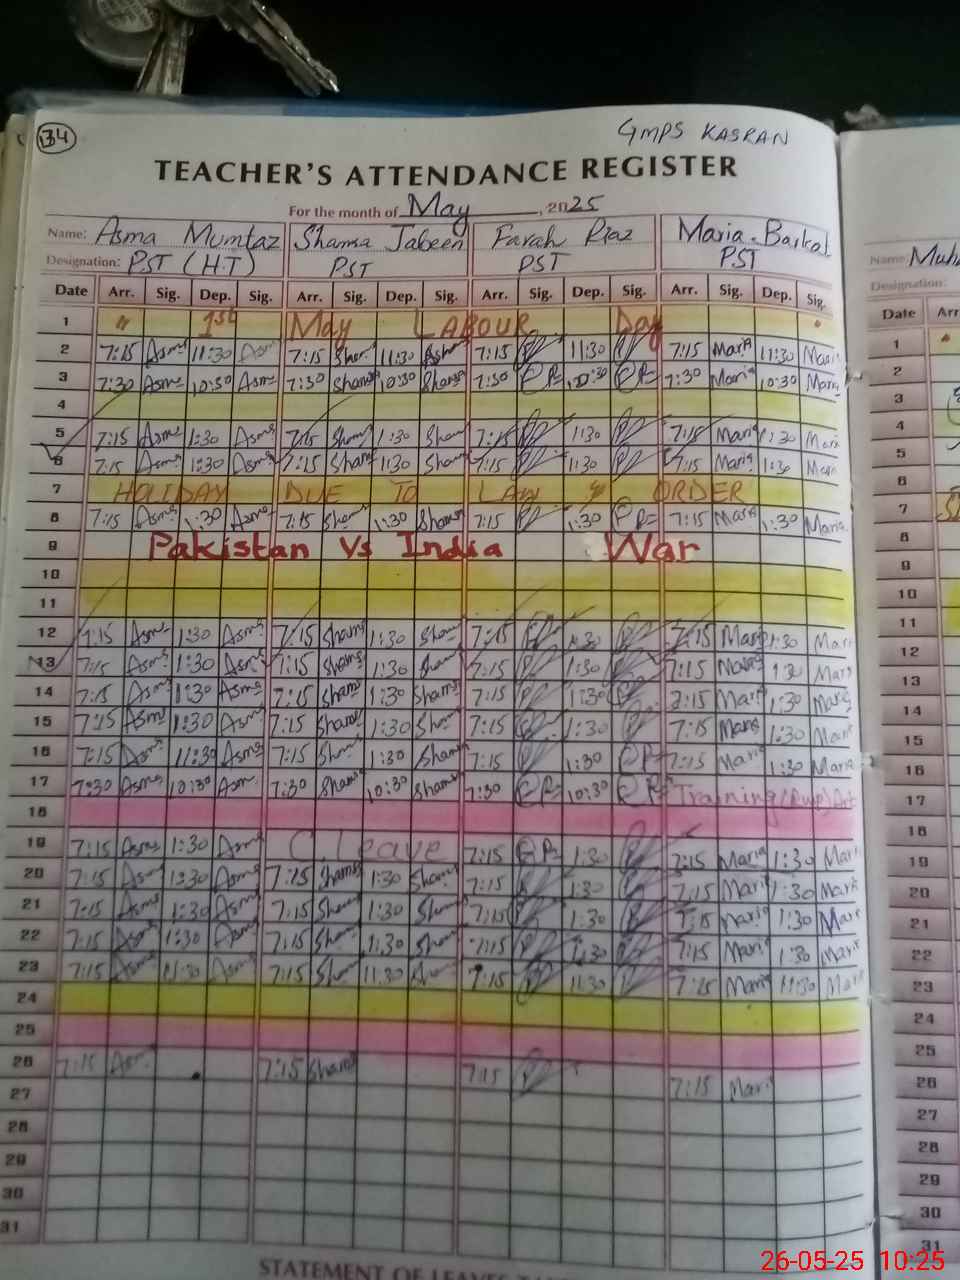 134
GMPS KASRAN
TEACHER'S ATTENDANCE REGISTER
For the month of May, 2025
Name: Asma Mumtaz Shamsa Jabeen Farah Riaz Maria Barkat Name: Muh
Designation: PST (H.T) PST PST PST Designation:
Date Arr. Sig. Dep. Sig. Arr. Sig. Dep. Sig. Arr. Sig. Dep. Sig. Arr. Sig. Dep. Sig. Date Arr
1 " 1st May LABOUR Day 1
2 7:15 Asma 11:30 Asma 7:15 Sham 11:30 Sham 7:15 11:30 7:15 Maria 11:30 Maria 2
3 7:30 Asma 10:30 Asma 7:30 Shamsa 10:30 Shamsa 7:30 10:30 7:30 Maria 10:30 Maria 3
4 4
5 7:15 Asma 1:30 Asma 7:15 Sham 1:30 Sham 7:15 1:30 7:15 Maria 1:30 Mari 5
6 7:15 Asma 1:30 Asma 7:15 Sham 1:30 Sham 7:15 1:30 7:15 Maria 1:30 Mari 6
7 HOLIDAY DUE TO LAW & ORDER 7
8 7:15 Asma 1:30 Asma 7:15 Sham 1:30 Shamsa 7:15 1:30 7:15 Maria 1:30 Maria 8
9 Pakistan Vs India War 9
10 10
11 11
12 7:15 Asma 1:30 Asma 7:15 Shams 1:30 Sham 7:15 1:30 7:15 Mari 1:30 Mari 12
13 7:15 Asma 1:30 Asma 7:15 Shams 1:30 Sham 7:15 1:30 7:15 Maria 1:30 Mari 13
14 7:15 Asma 1:30 Asma 7:15 Shams 1:30 Shams 7:15 1:30 7:15 Mari 1:30 Maria 14
15 7:15 Asma 1:30 Asma 7:15 Shams 1:30 Sham 7:15 1:30 7:15 Maria 1:30 Mari 15
16 7:15 Asma 11:30 Asma 7:15 Sham 1:30 Shams 7:15 1:30 7:15 Mari 1:30 Maria 16
17 7:30 Asma 10:30 Asma 7:30 Shams 10:30 Shams 7:30 10:30 Training 17
18 18
19 7:15 Asma 1:30 Asma C Leave 7:15 1:30 7:15 Maria 1:30 Mari 19
20 7:15 Asma 1:30 Asma 7:15 Shams 1:30 Shams 7:15 1:30 7:15 Mari 1:30 Mari 20
21 7:15 Asma 1:30 Asma 7:15 Sham 1:30 Sham 7:15 1:30 7:15 Maria 1:30 Mari 21
22 7:15 Asma 1:30 Asma 7:15 Sham 1:30 Sham 7:15 1:30 7:15 Mari 1:30 Mari 22
23 7:15 Asma 11:30 Asma 7:15 Sham 11:30 Sham 7:15 11:30 7:15 Mari 11:30 Mari 23
24 24
25 25
26 7:15 Asm 7:15 Shams 7:15 7:15 Mari 26
27 27
28 28
29 29
30 30
31 31
STATEMENT OF LEAVES
26-05-25 10:25